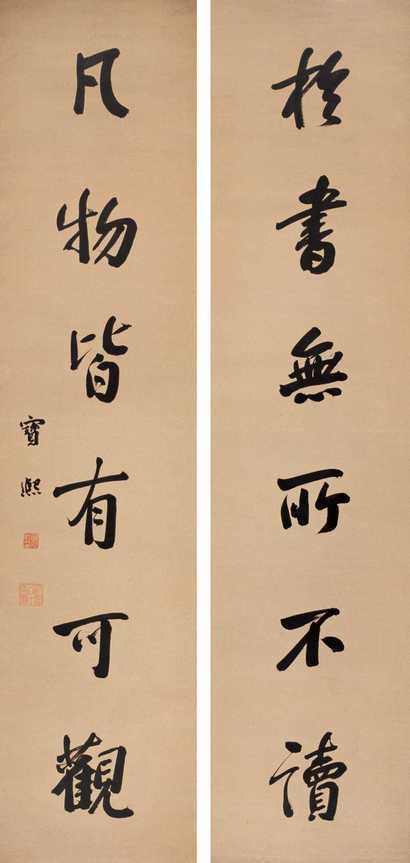 於書無所不讀
凡物皆有可觀
寶熙